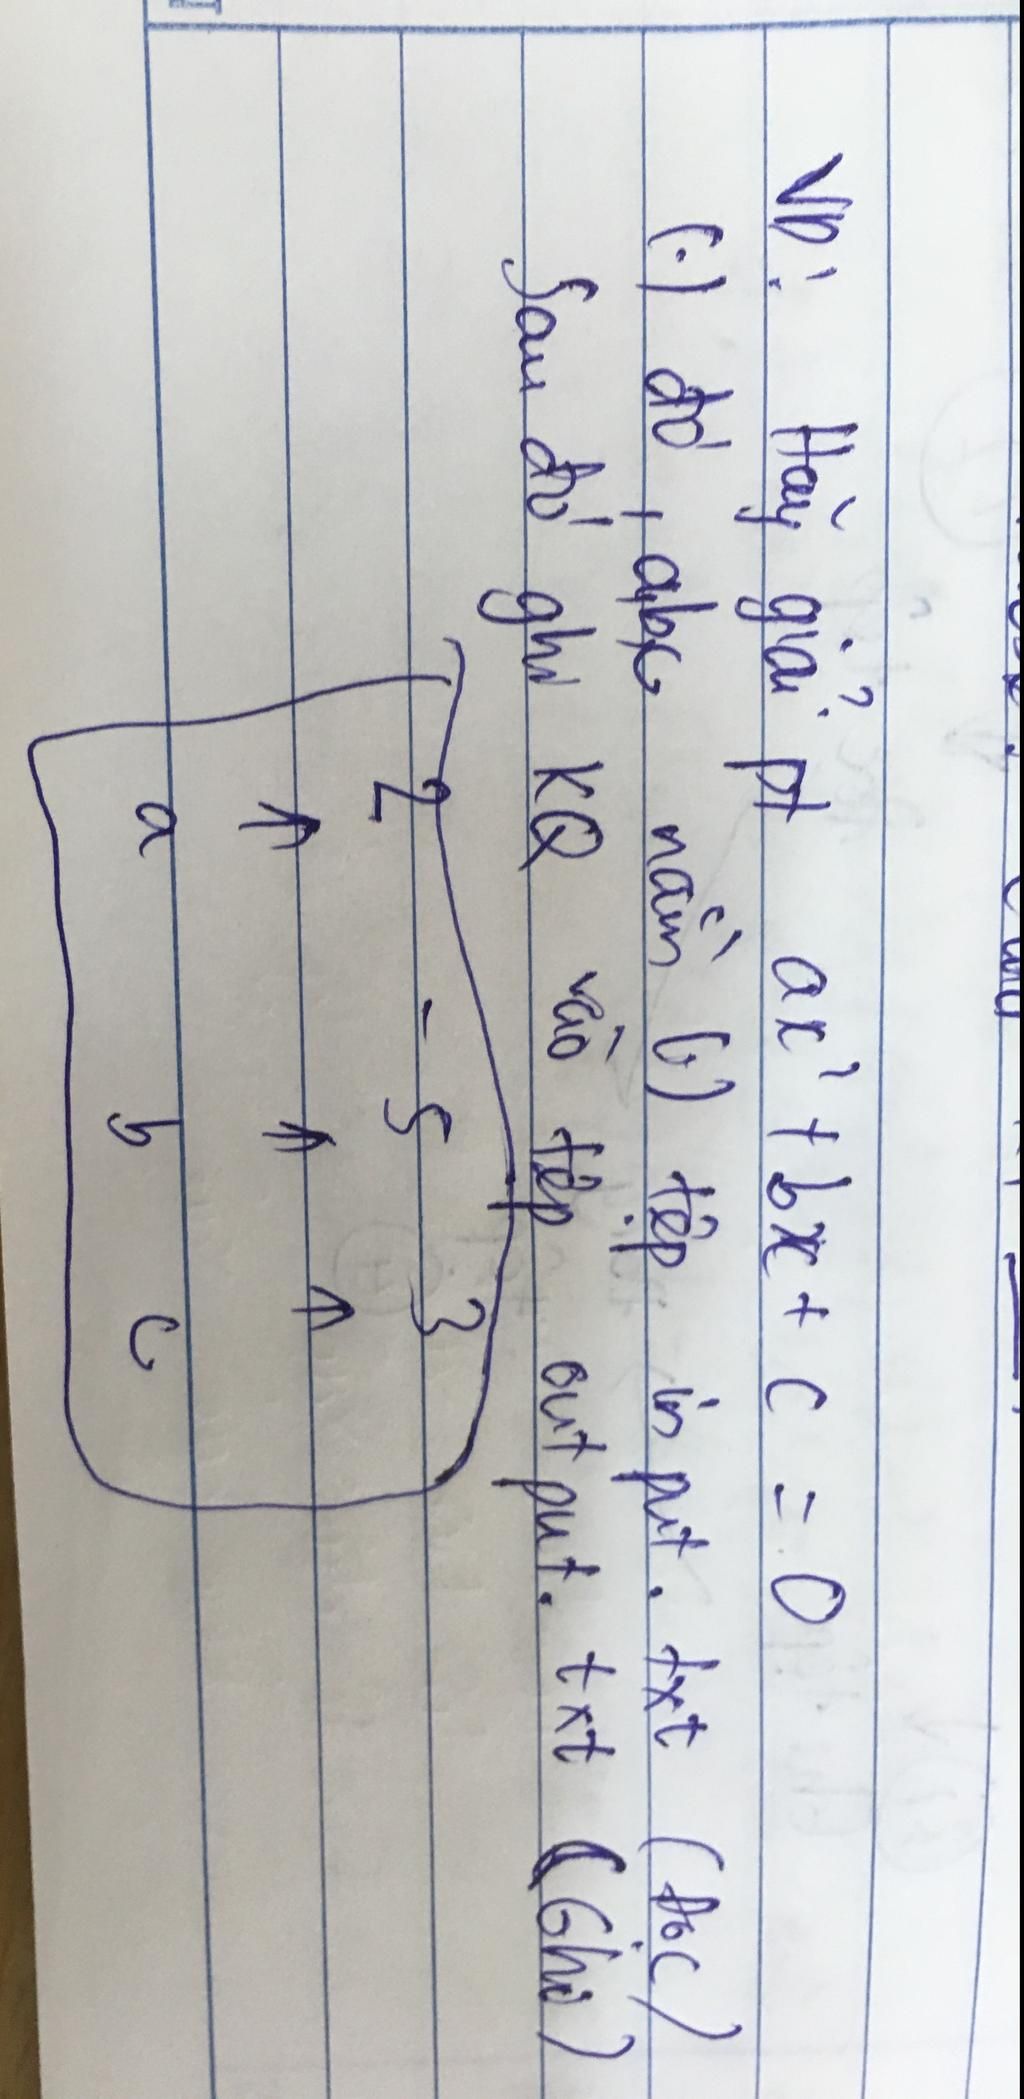 VD: Hãy giải pt ax² + bx + c = 0
(.) đó, a,b,c nằm (.) tệp input.txt (Đọc)
Sau đó ghi KQ vào tệp output.txt (Ghi)
2 -5 3
↑ ↑ ↑
a b c